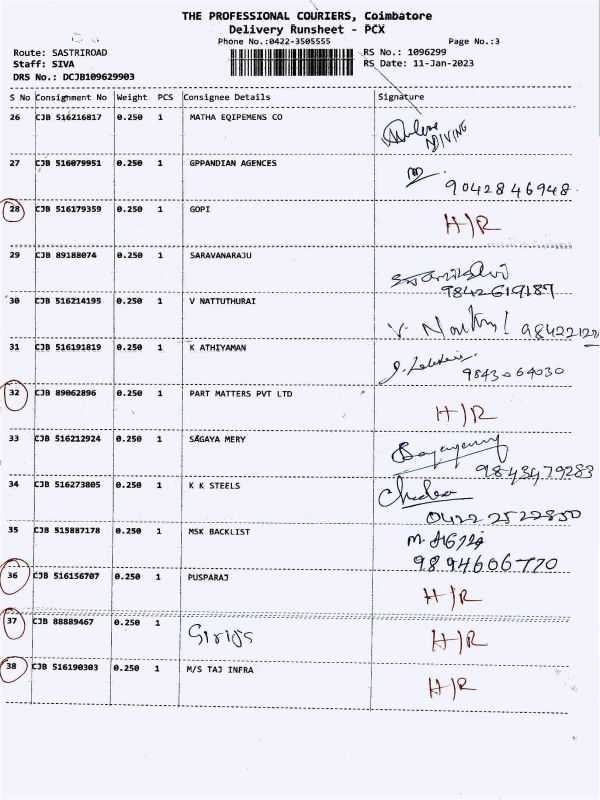 THE PROFESSIONAL COURIERS, Coimbatore
Delivery Runsheet - PCX
Phone No.:0422-3505555 Page No.:3
Route: SASTRIROAD RS No.: 1096299
Staff: SIVA RS Date: 11-Jan-2023
DRS No.: DCJB109629903
S No Consignment No Weight PCS Consignee Details Signature
26 CJB 516216817 0.250 1 MATHA EQIPEMENS CO
27 CJB 516079951 0.250 1 GPPANDIAN AGENCES
9042846948
28 CJB 516179359 0.250 1 GOPI H/R
29 CJB 89188074 0.250 1 SARAVANARAJU
9842619187
30 CJB 516214195 0.250 1 V NATTUTHURAI
31 CJB 516191819 0.250 1 K ATHIYAMAN
9843064030
32 CJB 89062896 0.250 1 PART MATTERS PVT LTD H/R
33 CJB 516212924 0.250 1 SAGAYA MERY
9843479283
34 CJB 516273805 0.250 1 K K STEELS
0422 2522850
35 CJB 515887178 0.250 1 MSK BACKLIST
9894606770
36 CJB 516156707 0.250 1 PUSPARAJ H/R
37 CJB 88889467 0.250 1 H/R
38 CJB 516190303 0.250 1 M/S TAJ INFRA H/R